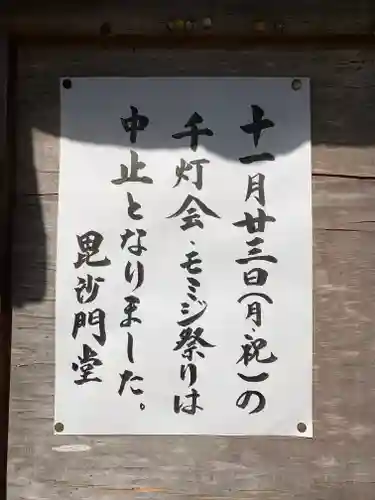 十一月廿三日(月・祝)の
千灯会・モミジ祭りは
中止となりました。
毘沙門堂